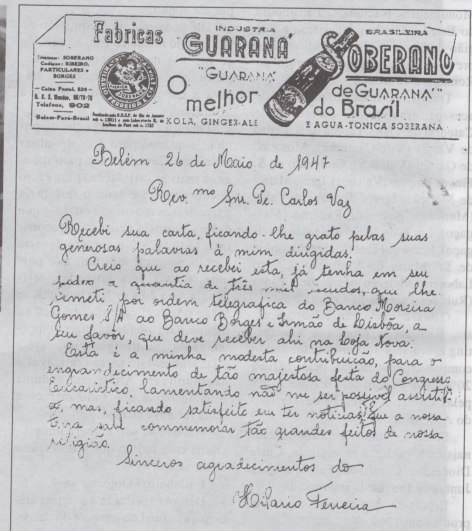 Fabricas
INDUSTRIA
BRASILEIRA
GUARANÁ SOBERANO
Telegrammas: SOBERANO
Codigos: RIBEIRO,
PARTICULARES e
BORGES
"GUARANÁ
de GUARANÁ"
Caixa Postal, 520
Telefone, 902
O melhor
do Brasil
Belem-Pará-Brasil
KOLA, GINGER-ALE
E AGUA-TONICA SOBERANA
Belém 26 de Maio de 1947
Rev.mo Snr. Pe. Carlos Vaz
Recebi sua carta, ficando-lhe grato pelas suas
generosas palavras á mim dirigidas.
Creio que ao receber esta, já tenha em seu
poder a quantia de três mil escudos, que lhe
remeti por ordem telegrafica do Banco Moreira
Gomes S/A ao Banco Borges e Irmão de Lisbôa, a
seu favor, que deve receber ahi na Loja Nova.
Esta é a minha modesta contribuicão, para o
engrandecimento de tão majestosa festa do Congresso
Eucaristico, lamentando não me ser possivel assisti-
mas, ficando satisfeito em ter noticias que a nossa
terra sabe commemorar tão grandes feitos de nossa
religião.
Sinceros agradecimentos do
Hilario Ferreira